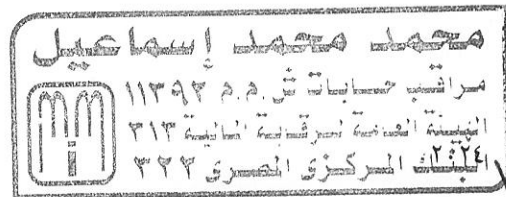 محمد محمد إسماعيل
مراقب حسابات س.م.م ١١٣٩٢
الهيئة العامة للرقابة المالية ٣١٣
البنك المركزى المصرى ٣٢٢
٢٠٢٤